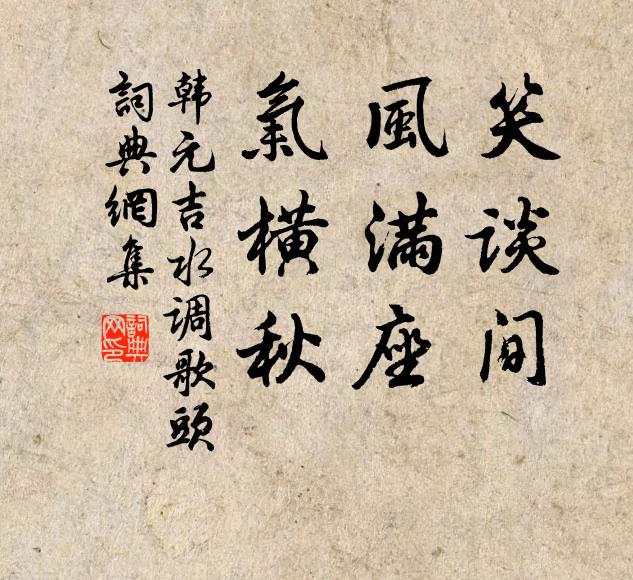 笑談间
風滿座
氣横秋
韩元吉水调歌頭
詞典網集
詞典网印